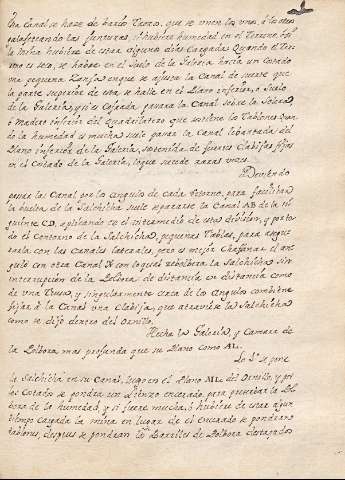 Una Canal se haze de barro Tosco, que se unen los unos, á los otros
calafeteando las junturas, si hubiere humedad en el Terreno, ó si
la mina hubiere de estar algunos dias Cargada. Quando el Ter-
reno es seco, se haze en el Suelo de la Galeria hacia un Costado
una pequeña Zanja en que se ajusta la Canal de suerte que
la parte superior de esta, se halle en el Llano inferior, ó Suelo
de la Galeria, y si es Cofrada pasara la Canal sobre la Solera,
ó Madero inferior del Quadrilatero que sostiene los Tablones quan-
do la humedad es mucha suele pasar la Canal lebantada del
Llano inferior de la Galeria, sostenida de fuertes Clabijas fijas
en el Costado de la Galeria, lo que sucede raras veces.
Deviendo
pasar la Canal por los angulos de cada Retorno, para facilitar
la buelta de la Salchicha suele apartarse la Canal AB de la si-
guiente CD, aplicando en el intermedio de esta division, y por to-
do el Contorno de la Salchicha, pequeñas Tablas, para asegu-
rarla con las Canales laterales, pero es mejor Chaflanar el an-
gulo con otra Canal X con lo qual se doblara la Salchicha sin
interrupcion de la Polbora de distancia en distancia como
de una Tuesa, y singularmente cerca de los angulos combiene
fijar á la Canal una Clabija, que atraviese la Salchicha
como se dijo dentro del Ornillo.
Hecha la Galeria, y Camara de
la Polbora mas profunda que su Plano como AL.
Se pone
la Salchicha en su Canal, luego en el Plano ML del Ornillo, y por
los Costados se pondra un Lienzo encerado, para preserbar la Pol-
bora de la humedad, y si fuere mucha, ó hubiere de estar algun
tiempo cargada la mina en lugar de el encerado se pondran
tablones, despues se pondran los Barriles de Polbora destapados